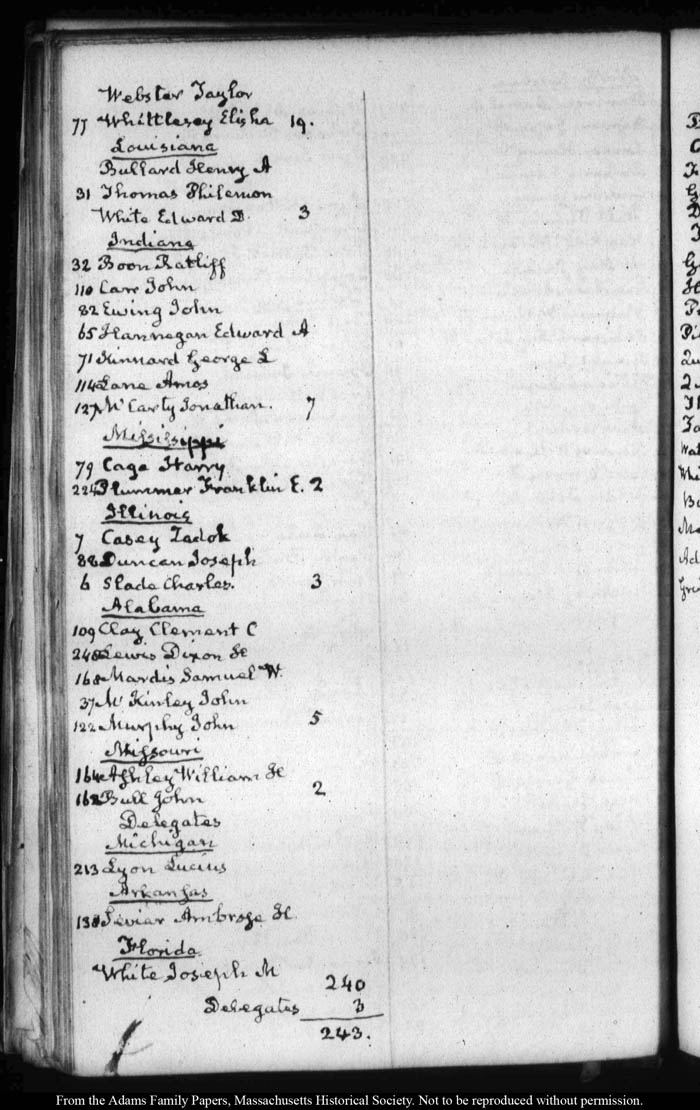 Webster Taylor
77 Whittlesey Elisha 19.
Louisiana
Bullard Henry A
31 Thomas Philemon
White Edward D. 3
Indiana
32 Boon Ratliff
110 Carr John
82 Ewing John
65 Hannegan Edward A
71 Kinnard George L
114 Lane Amos
127 McCarty Jonathan. 7
Mississippi
79 Cage Harry
224 Plummer Franklin E. 2
Illinois
7 Casey Zadok
88 Duncan Joseph
6 Slade Charles. 3
Alabama
109 Clay Clement C
240 Lewis Dixon H
168 Mardis Samuel W.
37 McKinley John
122 Murphy John 5
Missouri
164 Ashley William H
162 Bull John 2
Delegates
Michigan
213 Lyon Lucius
Arkansas
138 Sevier Ambrose H.
Florida
White Joseph M
240
Delegates 3
243.
From the Adams Family Papers, Massachusetts Historical Society. Not to be reproduced without permission.